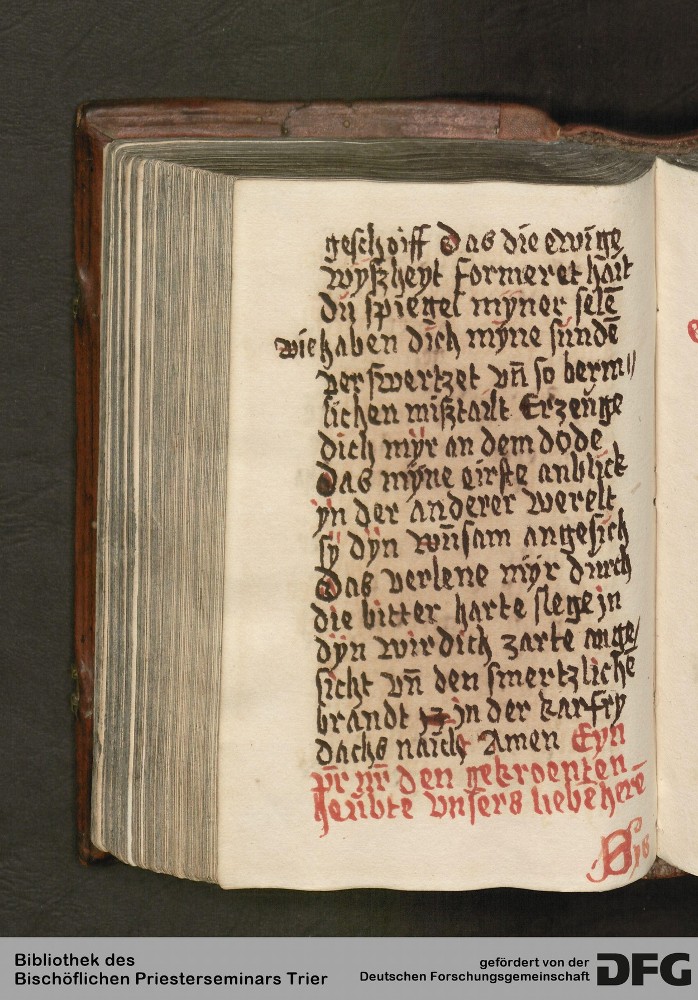 geschoiff Das die ewige
wÿszheyt formeret hait
du spiegel mÿner selē
wie haben dich mÿne sundē
verswertzet vn̄ so berm//
lichen misztailt Erzeuge
dich mÿr an dem dode
Das mÿne eirste anblick
ÿn der anderer werelt
sÿ dÿn wu̅sam angesich
Das verlene mÿr durch
die bitter harte slege jn
dÿn wirdich zarte ange/
sicht vn̄ den smertzlichē
brandt jn der karfry
dachs naicht Amen Eyn
den gekroenten
heubte vnsers liebē herē
Bibliothek des
Bischöflichen Priesterseminars Trier
gefördert von der
Deutschen Forschungsgemeinschaft
DFG